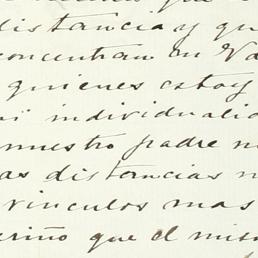 distancia y qu
concentran en Va
quienes estoy
individualid
nuestro padre n
as distancias n
vinculos mas
eriño que el mism